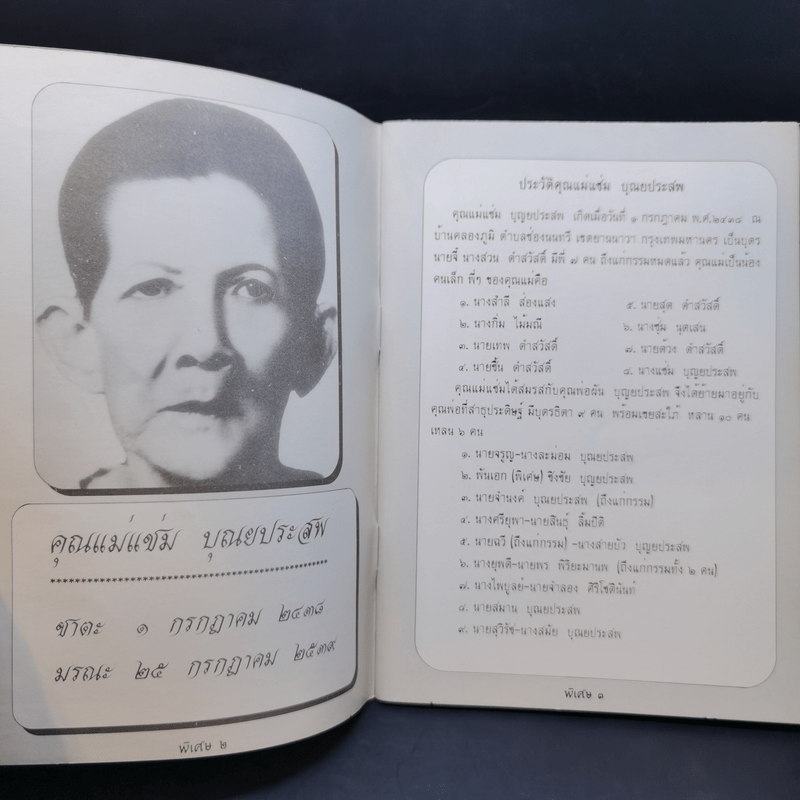 คุณแม่แช่ม บุณยประสพ
ชาตะ ๑ กรกฎาคม ๒๔๓๘
มรณะ ๒๕ กรกฎาคม ๒๕๓๙
พิเศษ ๒
ประวัติคุณแม่แช่ม บุณยประสพ
คุณแม่แช่ม บุญยประสพ เกิดเมื่อวันที่ ๑ กรกฎาคม พ.ศ.๒๔๓๘ ณ
บ้านคลองภูมิ ตำบลช่องนนทรี เขตยานนาวา กรุงเทพมหานคร เป็นบุตร
นายจี๋ นางส่วน ดำสวัสดิ์ มีพี่ ๗ คน ถึงแก่กรรมหมดแล้ว คุณแม่เป็นน้อง
คนเล็ก พี่ๆ ของคุณแม่คือ
๑. นางสำลี ส่องแสง
๒. นางกิ่ม ไม้มณี
๓. นายเทพ ดำสวัสดิ์
๔. นายชื้น ดำสวัสดิ์
๕. นายสุด ดำสวัสดิ์
๖. นางชุ่ม นุตเสน
๗. นายด้วง ดำสวัสดิ์
๘. นางแช่ม บุญยประสพ
คุณแม่แช่มได้สมรสกับคุณพ่อผัน บุญยประสพ จึงได้ย้ายมาอยู่กับ
คุณพ่อที่สาธุประดิษฐ์ มีบุตรธิดา ๙ คน พร้อมเขยสะใภ้ หลาน ๑๐ คน
เหลน ๖ คน
๑. นายจรูญ-นางละม่อม บุณยประสพ
๒. พันเอก (พิเศษ) ชิงชัย บุญยประสพ
๓. นายจำนงค์ บุญยประสพ (ถึงแก่กรรม)
๔. นางศรียุพา-นายสินธุ์ ลิ้มปิติ
๕. นายฉวี (ถึงแก่กรรม) -นางสายบัว บุญยประสพ
๖. นางยุพดี-นายพร พิริยะมานพ (ถึงแก่กรรมทั้ง ๒ คน)
๗. นางไพบูลย์-นายจำลอง ศิริโชตินันท์
๘. นายสมาน บุณยประสพ
๙. นายสุวิรัช-นางสมัย บุณยประสพ
พิเศษ ๓